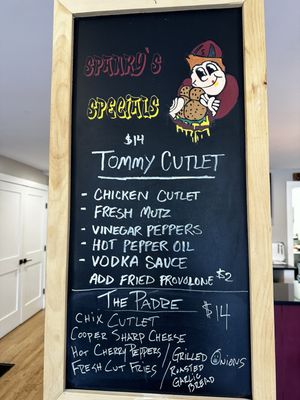 SPANKY'S
SPECIALS
$14
TOMMY CUTLET
- CHICKEN CUTLET
- FRESH MUTZ
- VINEGAR PEPPERS
- HOT PEPPER OIL
- VODKA SAUCE
ADD FRIED PROVOLONE $2
THE PADRE $14
CHIX CUTLET
COOPER SHARP CHEESE
HOT CHERRY PEPPERS / GRILLED ONIONS
FRESH CUT FRIES / ROASTED
GARLIC
BREAD